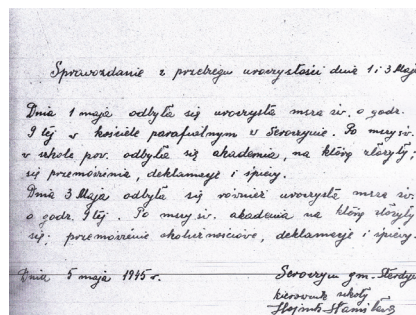 Sprawozdanie z przebiegu uroczystości dnia 1 i 3 Maja
Dnia 1 maja odbyła się uroczysta msza św. o godz.
9 tej w kościele parafialnym w Seroczynie. Po mszy św.
w szkole pow. odbyła się akademia, na którą złożyły
się przemówienia, deklamacje i śpiewy.
Dnia 3 Maja odbyła się również uroczysta msza św.
o godz. 9 tej. Po mszy św. akademia na którą złożyły
się: przemówienie okolicznościowe, deklamacje i śpiewy.
Dnia 5 maja 1945 r. Seroczyn gm. Sterdyń
kierownik szkoły